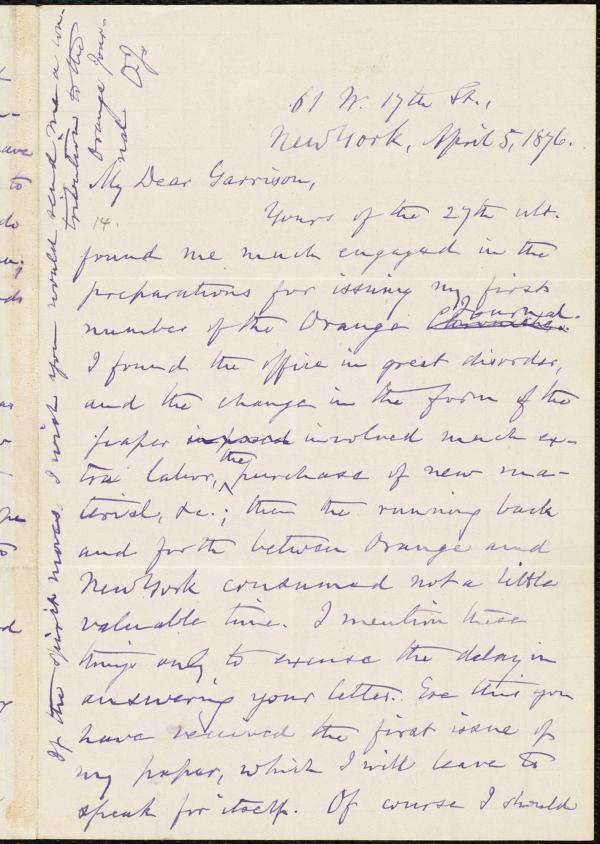 61 W. 17th St.,
New York, April 5, 1876.
My Dear Garrison,
14.
Yours of the 27th ult.
found me much engaged in the
preparations for issuing my first
number of the Orange Chronicle. Journal.
I found the office in great disorder,
and the change in the form of the
paper imposed involved much ex-
tra labor, the purchase of new ma-
terial, &c.; then the running back
and forth between Orange and
New York consumed not a little
valuable time. I mention these
things only to excuse the delay in
answering your letter. Ere this you
have received the first issue of
my paper, which I will leave to
speak for itself. Of course I should
If the spirit moves, I wish you would send me a con-
tribution to the
Orange Jour-
nal